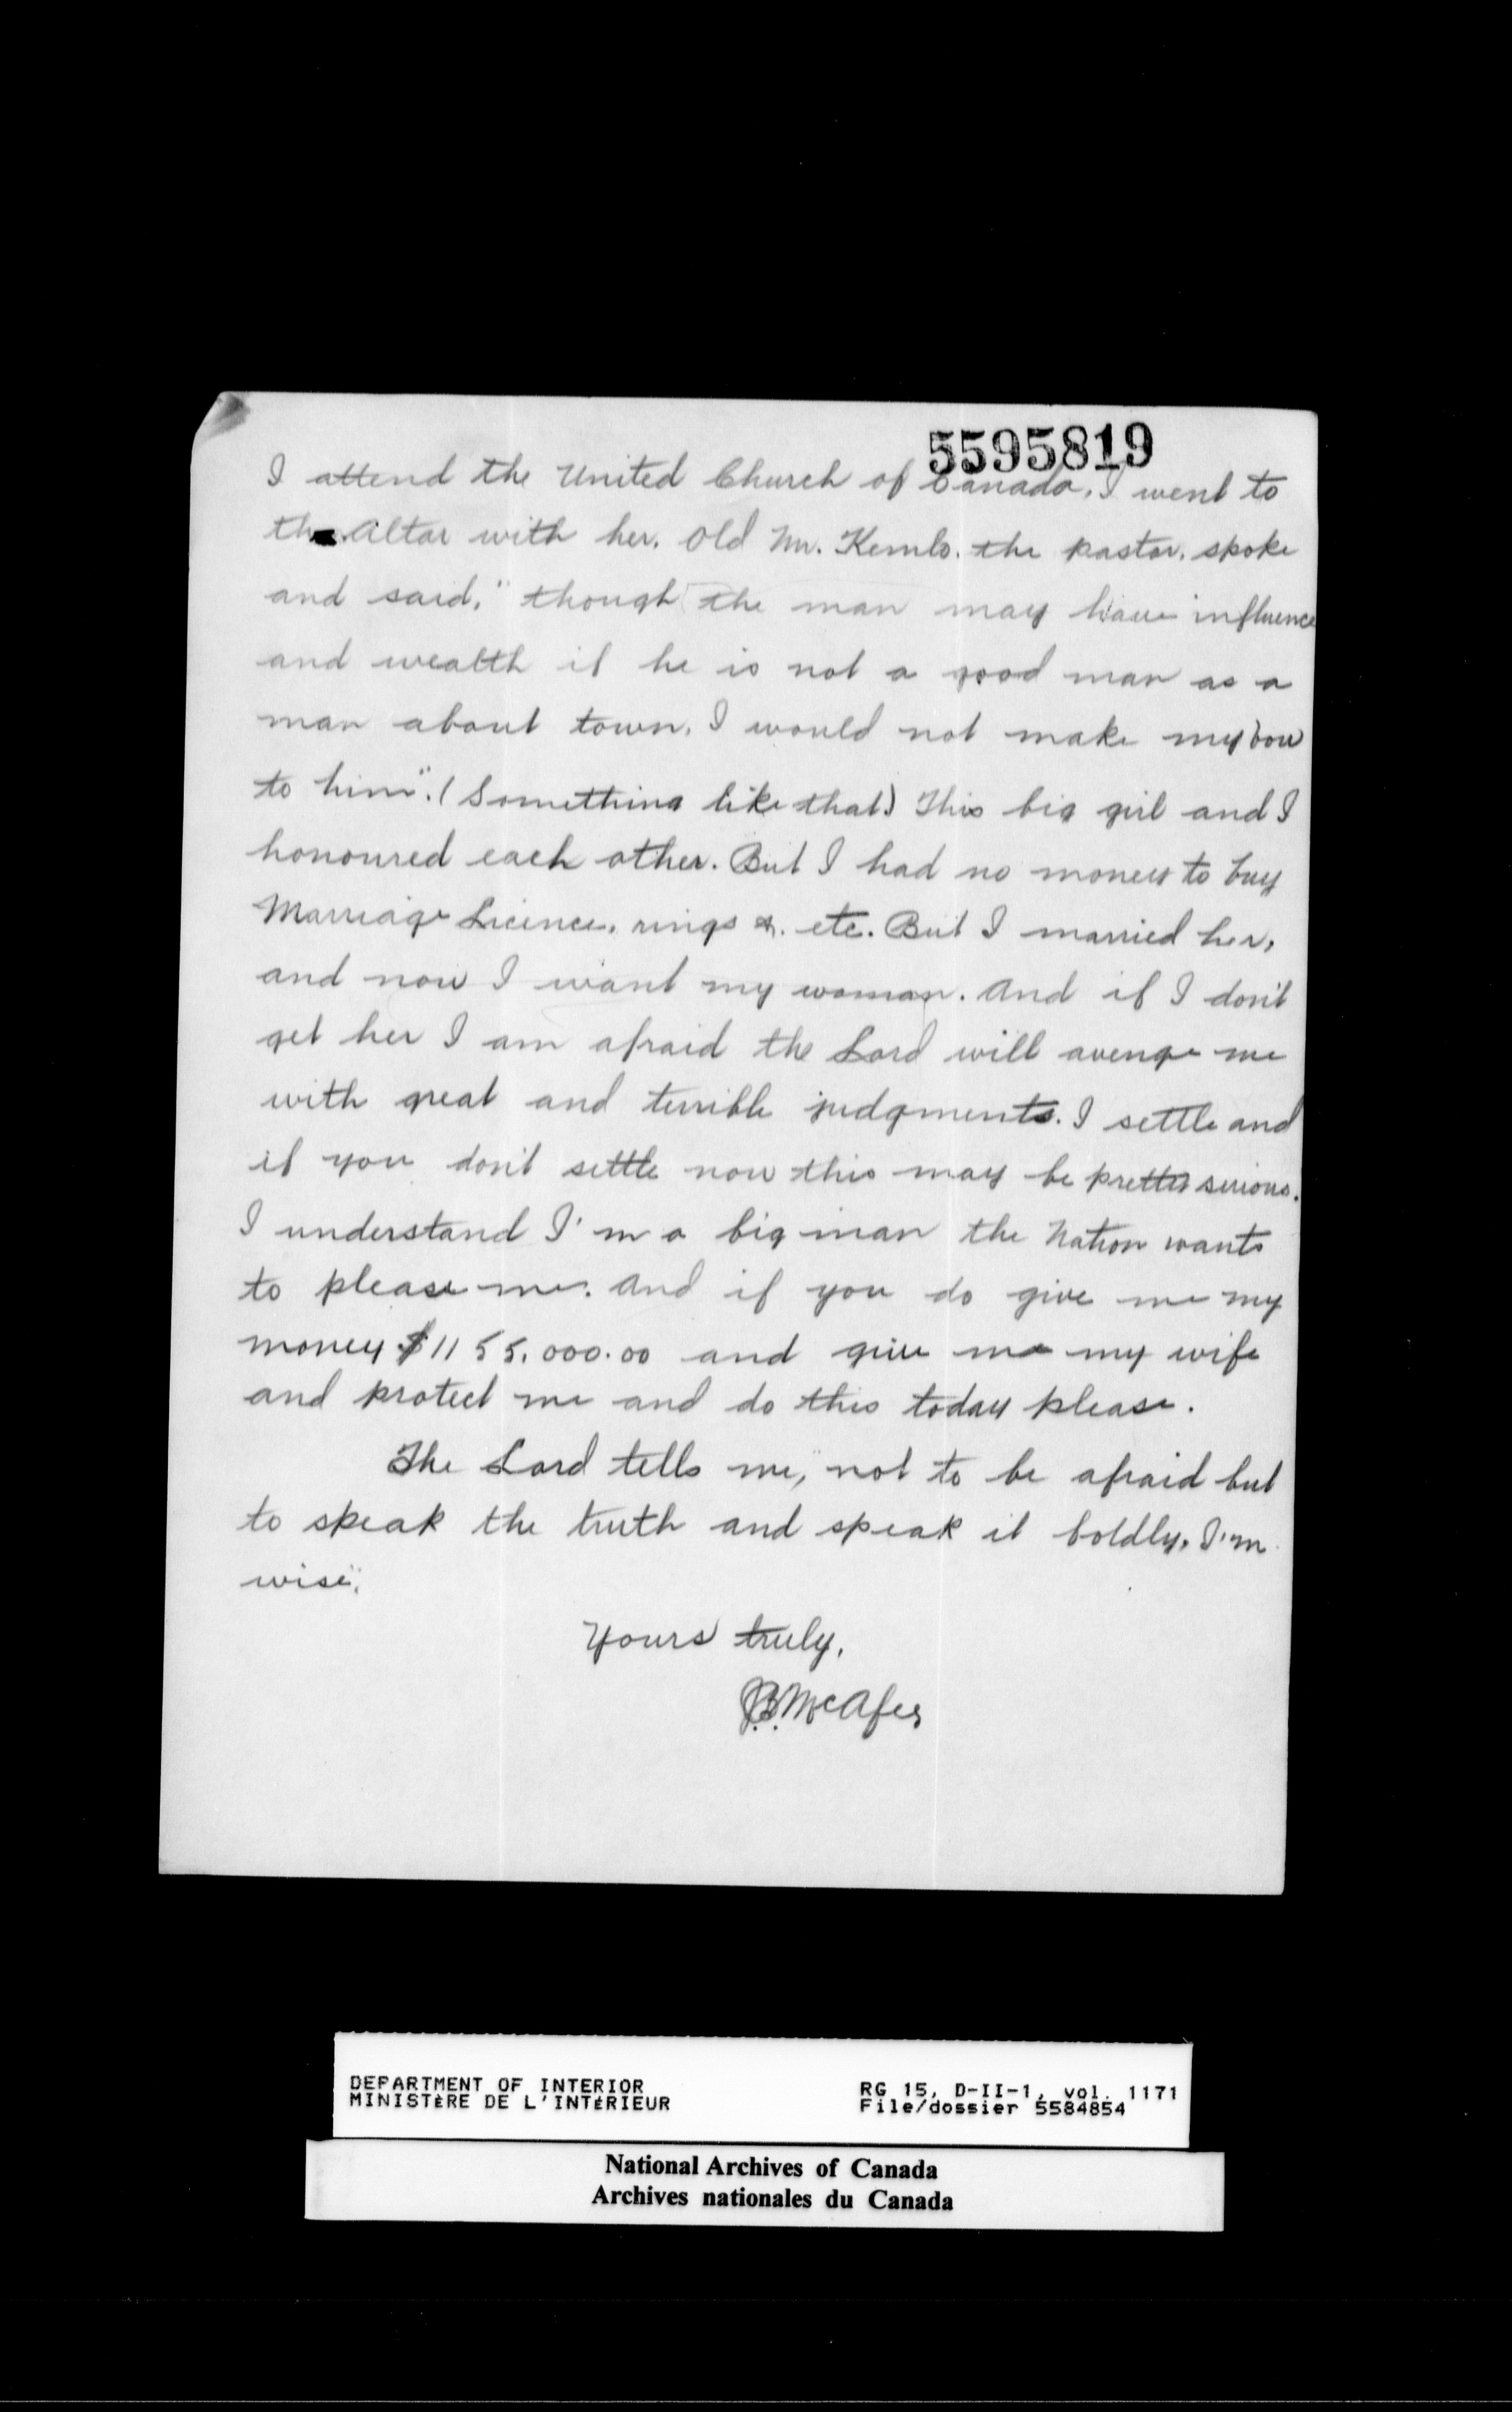 5595819
I attend the United Church of Canada, I went to
the Altar with her. Old Mr. Kemlo. the pastor. spoke
and said, " though the man may have influence
and wealth if he is not a good man as a
man about town. I would not make my bow
to him". ( Something like that) This big girl and I
honoured each other. But I had no money to buy
Marriage Licence, rings &. etc. But I married her,
and now I want my woman. And if I don't
get her I am afraid the Lord will avenge me
with great and terrible judgments. I settle and
if you don't settle now this may be pretty serious.
I understand I'm a big man the Nation wants
to please me. And if you do give me my
money $1155,000.00 and give me my wife
and protect me and do this today please.
The Lord tells me, "not to be afraid but
to speak the truth and speak it boldly, I'm
wise".
Yours truly,
McAfee
DEPARTMENT OF INTERIOR
MINISTÈRE DE L'INTÉRIEUR
RG 15, D-II-1, vol. 1171
File/dossier 5584854
National Archives of Canada
Archives nationales du Canada